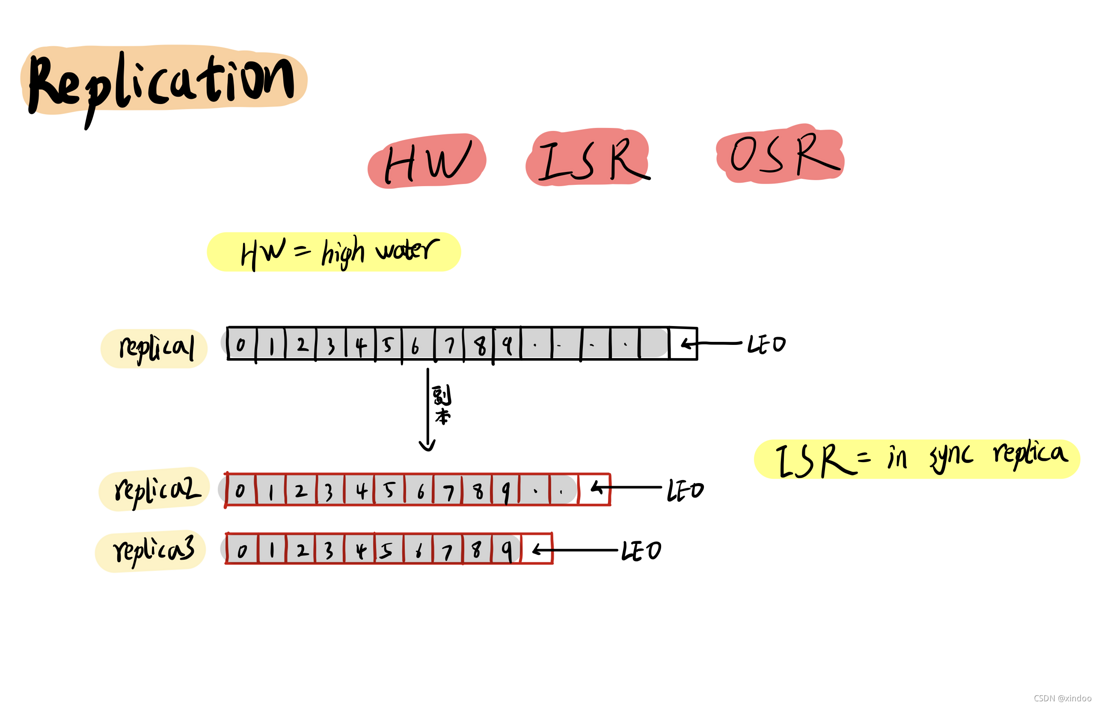 Replication
HW ISR OSR
HW = high water
replica1 0 1 2 3 4 5 6 7 8 9 . . . . LEO
副本
ISR = in sync replica
replica2 0 1 2 3 4 5 6 7 8 9 . . LEO
replica3 0 1 2 3 4 5 6 7 8 9 LEO
CSDN @xindoo